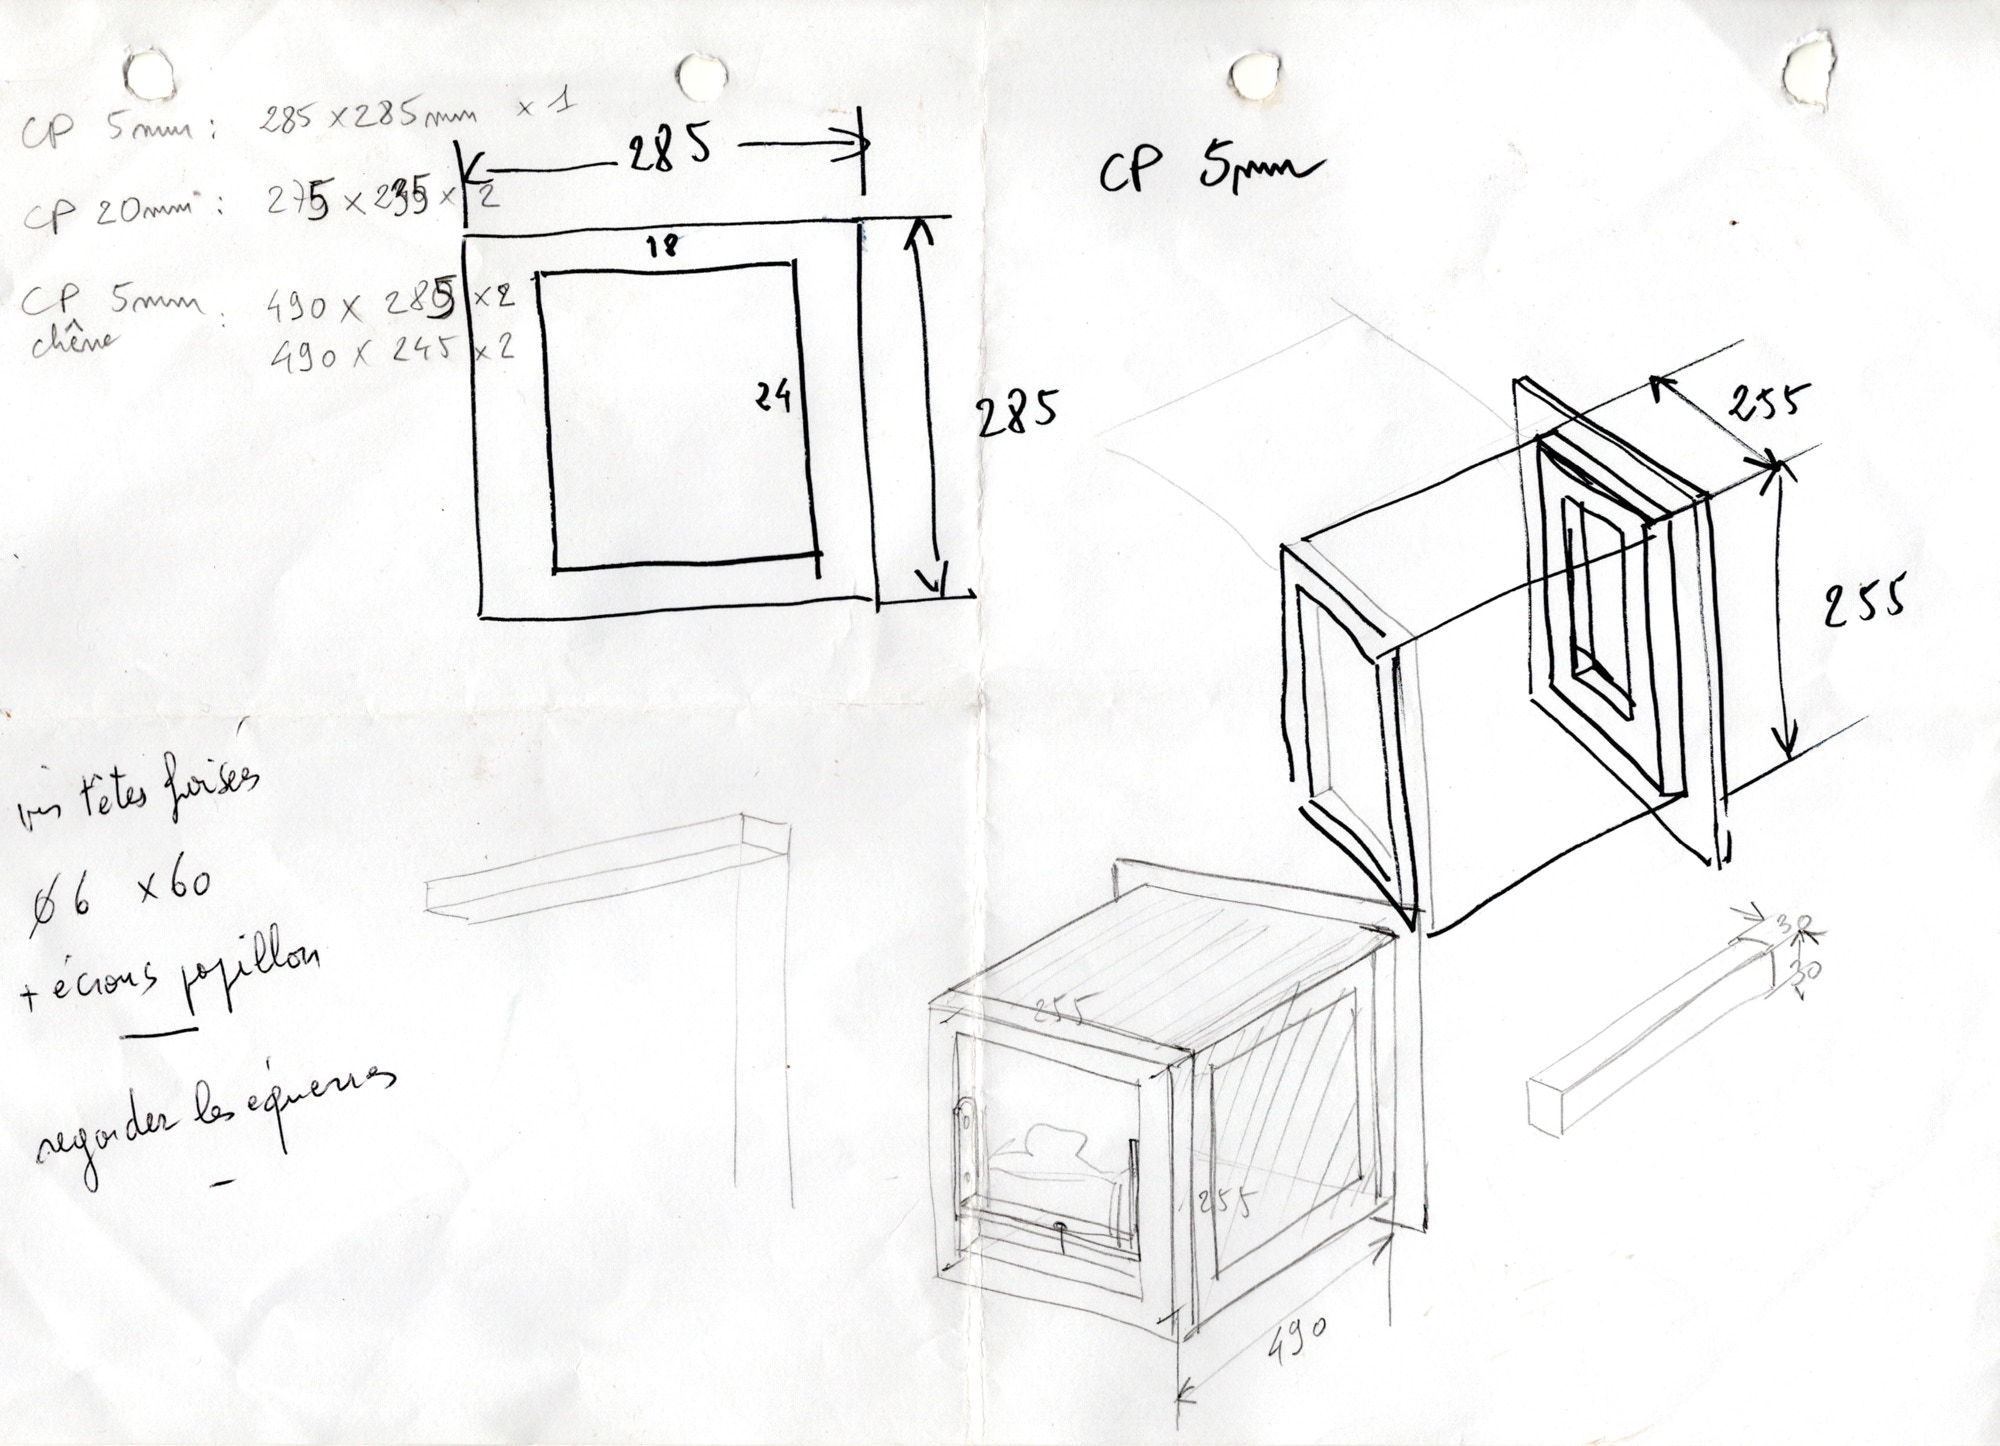 CP 5mm : 285 x 285mm x 1
CP 20mm : 275 x 235 x 2
CP 5mm : 490 x 285 x 2
chêne 490 x 245 x 2
285
18
24
285
CP 5mm
255
255
vis têtes fraisées
Ø6 x 60
+ écrous papillon
regarder les équerres
30
30
255
255
490